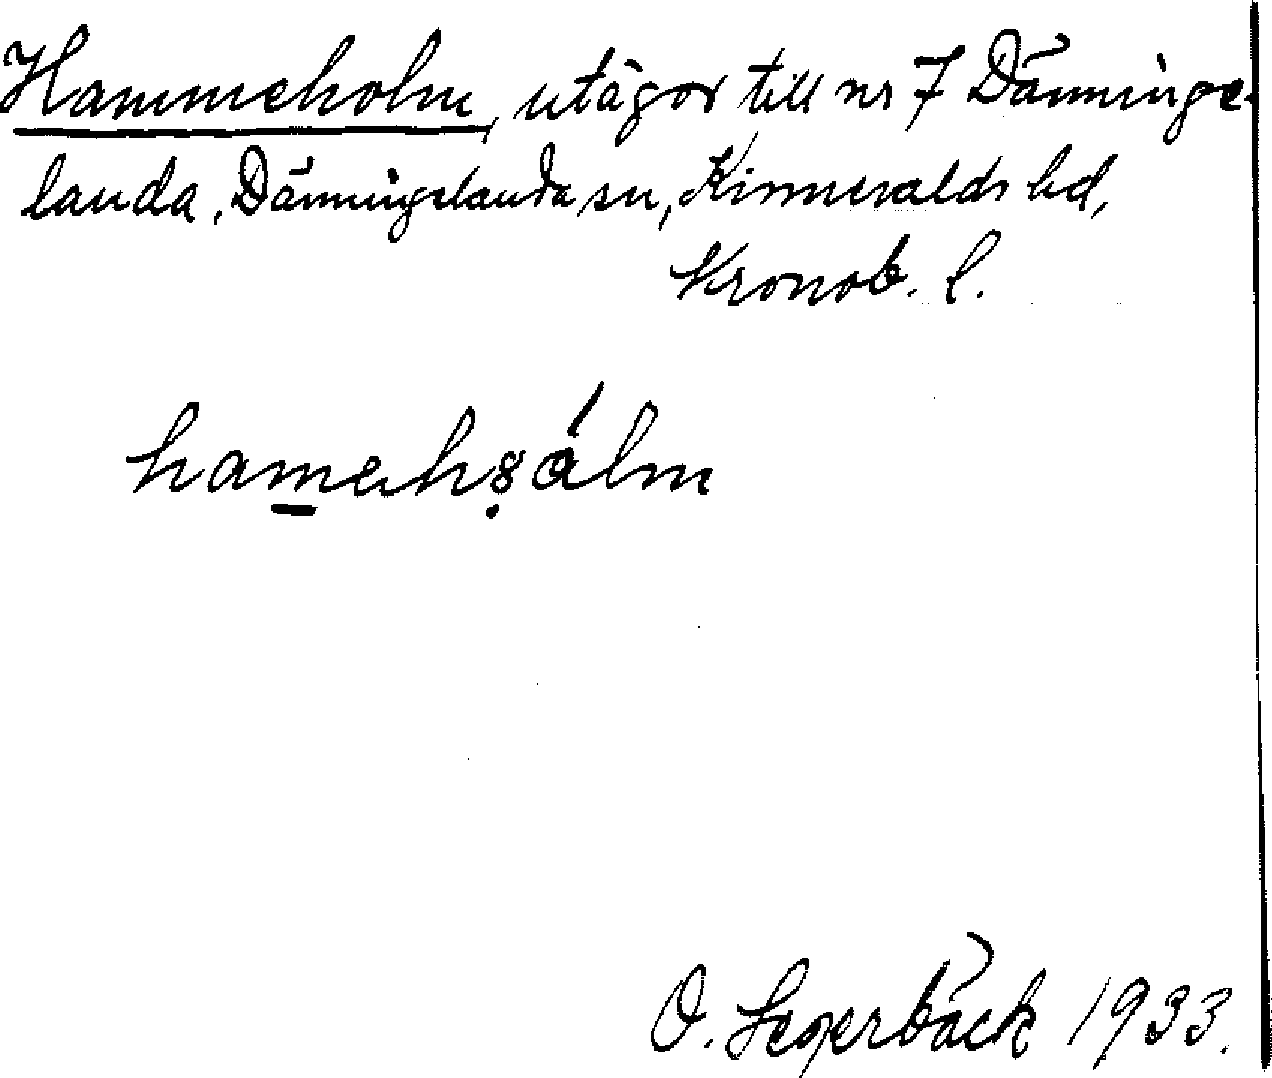 Hammeholm, utägor till nr 7 Dänninge-
landa, Dänningelanda sn, Kinnevalds hd,
Kronob. l.
O. Segerbäck 1933.